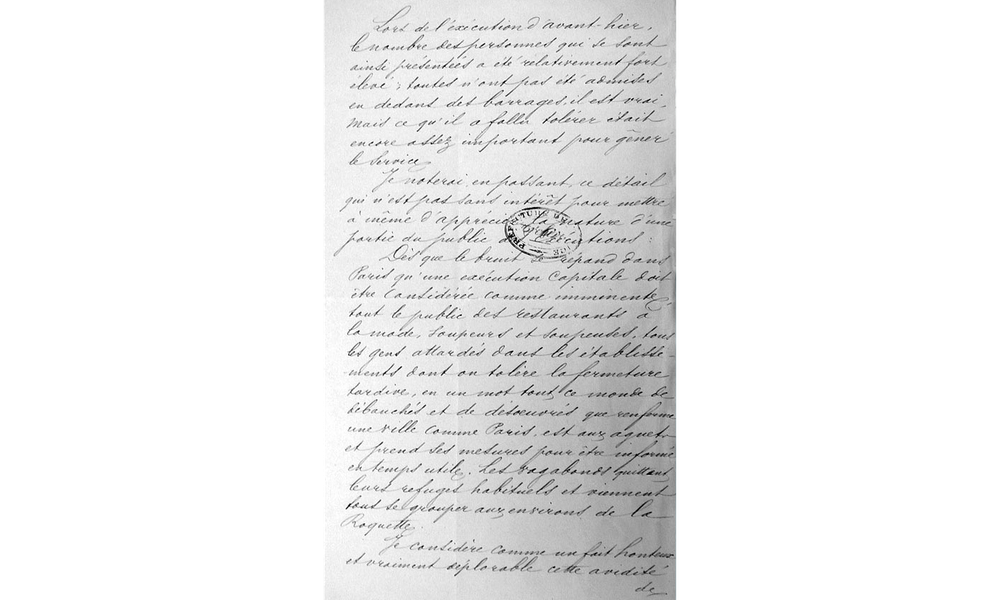 Lors de l'exécution d'avant-hier,
le nombre des personnes qui se sont
ainsi présentées a été relativement fort
élevé ; toutes n'ont pas été admises
en dedans des barrages, il est vrai,
mais ce qu'il a fallu tolérer était
encore assez important pour gêner
le service.
Je noterai, en passant, ce détail
qui n'est pas sans intérêt pour mettre
à même d'apprécier la nature d'une
partie du public des exécutions :
PRÉFECTURE DE
Dès que le bruit se répand dans
Paris qu'une exécution capitale doit
être considérée comme imminente,
tout le public des restaurants à
la mode, soupeurs et soupeuses, tous
les gens attardés dans les établisse-
ments dont on tolère la fermeture
tardive, en un mot tout ce monde de
débauchés et de désoeuvrés que renferme
une ville comme Paris, est aux aguets
et prend ses mesures pour être informé
en temps utile. Les vagabonds quittent
leurs refuges habituels et viennent
tous se grouper aux environs de la
Roquette.
Je considère comme un fait honteux
et vraiment déplorable cette avidité
de